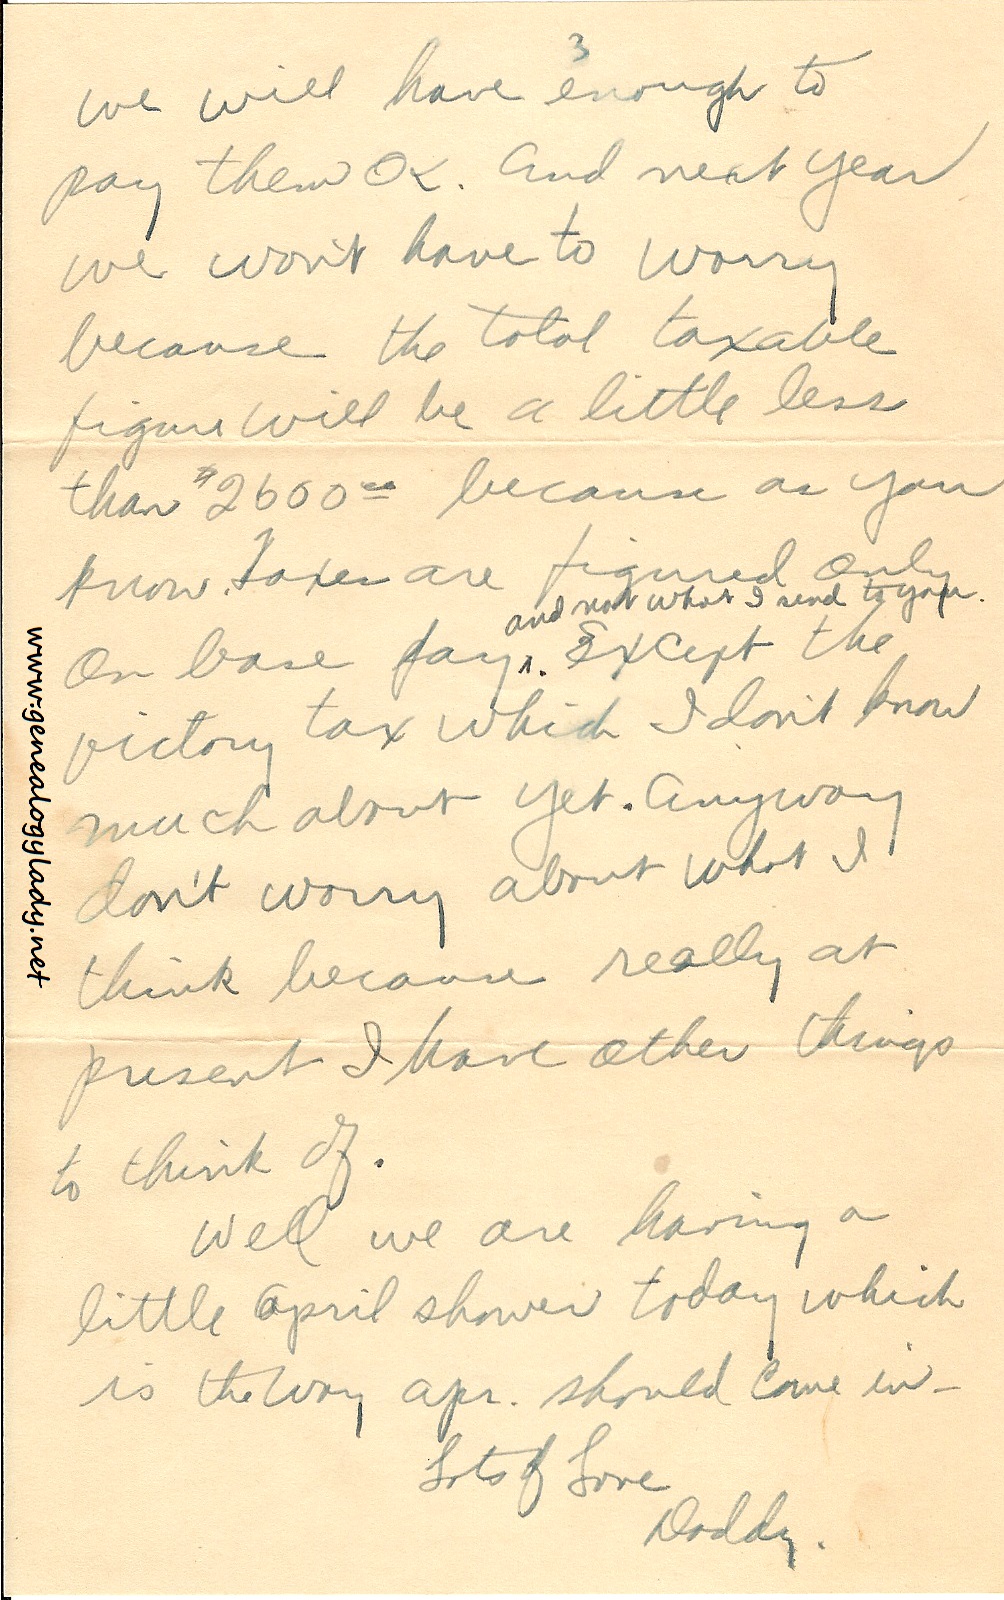 3
we will have enough to
pay them OK. And next year
we won't have to worry
because the total taxable
figure will be a little less
than $2600⁰⁰ because as you
know. Taxes are figured only
and not what I send to you.
on base pay ^. Except the
victory tax which I don't know
much about yet. Anyway
don't worry about what I
think because really at
present I have other things
to think of.
Well we are having a
little April shower today which
is the way Apr. should come in—
Lots of Love
Daddy.
www.genealogylady.net